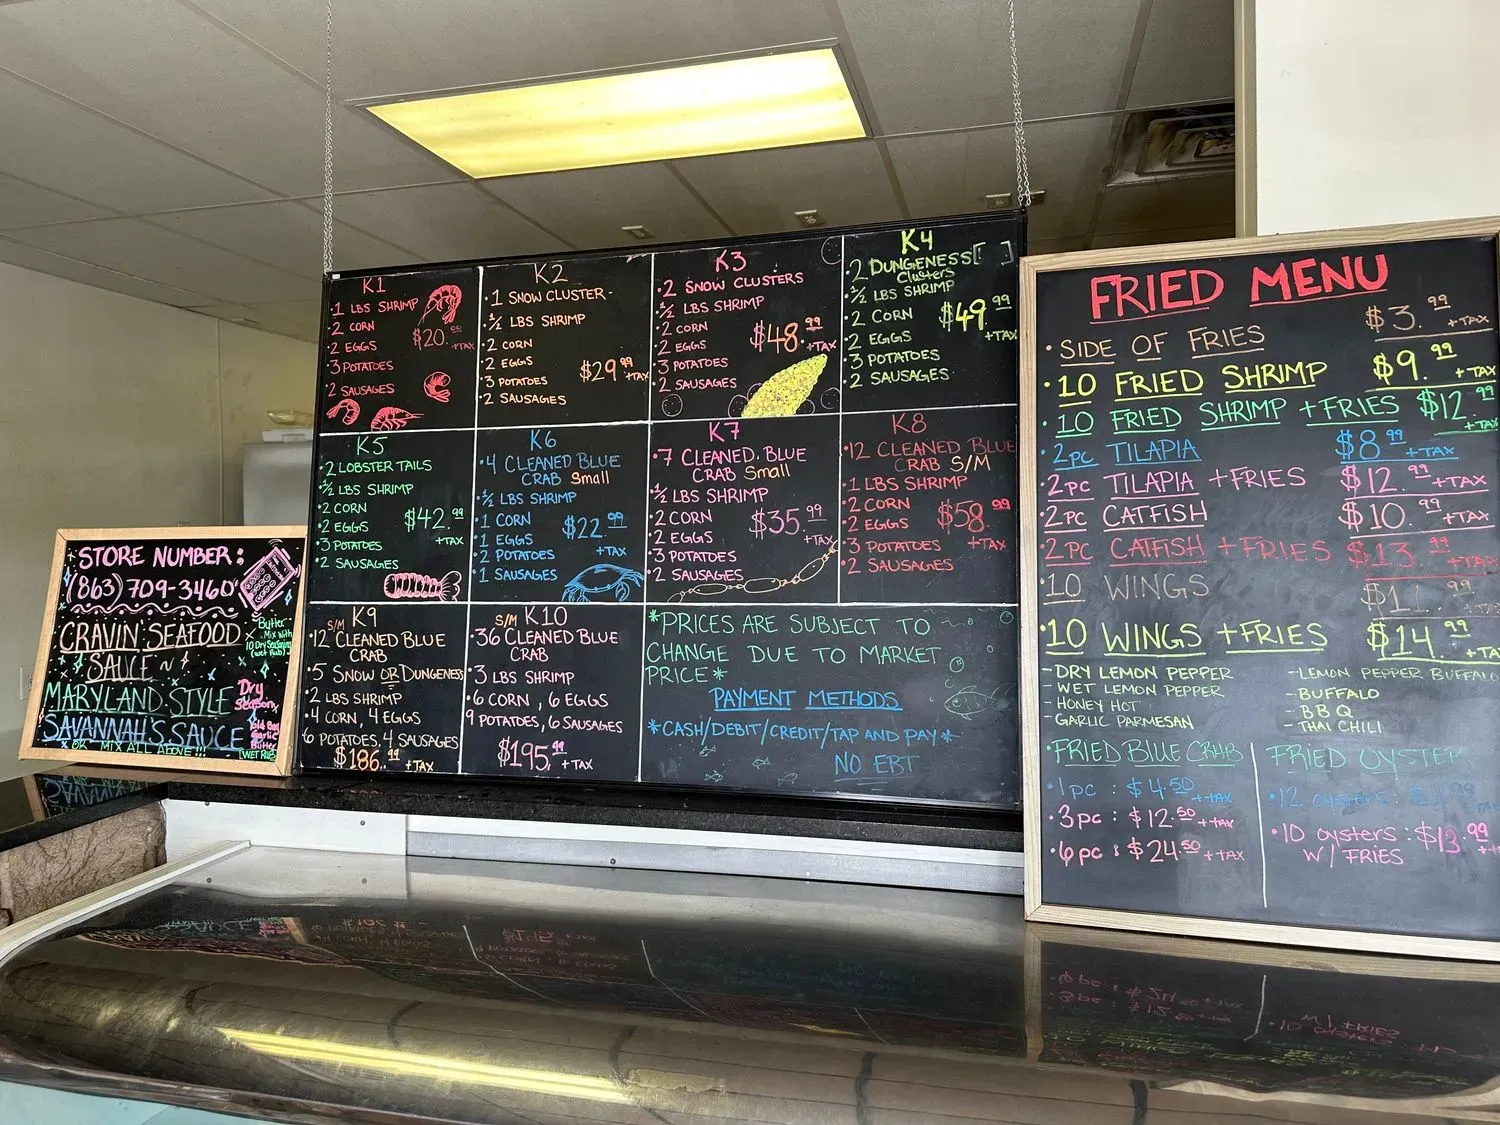 STORE NUMBER:
(863) 709-3460
CRAVIN' SEAFOOD
SAUCE ~
MARYLAND STYLE
SAVANNAH'S SAUCE
OR MIX ALL ABOVE!!!
Butter
Mix With
10 Dry Seasoning
(wet Rub)
Dry
Season
Old Bay
Garlic
Butter
[WET RUB]
K1
·1 LBS SHRIMP
·2 CORN
·2 EGGS
·3 POTATOES
·2 SAUSAGES
$20. +TAX
K2
·1 SNOW CLUSTER-
·½ LBS SHRIMP
·2 CORN
·2 EGGS
·3 POTATOES
·2 SAUSAGES
$29.99 +TAX
K3
·2 SNOW CLUSTERS
·½ LBS SHRIMP
·2 CORN
·2 EGGS
·3 POTATOES
·2 SAUSAGES
$48.99 +TAX
K4
·2 DUNGENESS[ ]
Clusters
·½ LBS SHRIMP
·2 CORN
·2 EGGS
·3 POTATOES
·2 SAUSAGES
$49.99 +TAX
K5
·2 LOBSTER TAILS
·½ LBS SHRIMP
·2 CORN
·2 EGGS
·3 POTATOES
·2 SAUSAGES
$42.99 +TAX
K6
·4 CLEANED BLUE
CRAB Small
·½ LBS SHRIMP
·1 CORN
·1 EGGS
·2 POTATOES
·1 SAUSAGES
$22.99 +TAX
K7
·7 CLEANED BLUE
CRAB Small
·½ LBS SHRIMP
·2 CORN
·2 EGGS
·3 POTATOES
·2 SAUSAGES
$35.99 +TAX
K8
·12 CLEANED BLUE
CRAB S/M
·1 LBS SHRIMP
·2 CORN
·2 EGGS
·3 POTATOES
·2 SAUSAGES
$58.99 +TAX
K9
S/M
·12 CLEANED BLUE
CRAB
·5 SNOW OR DUNGENESS
·2 LBS SHRIMP
·4 CORN, 4 EGGS
·6 POTATOES, 4 SAUSAGES
$186.99 +TAX
S/M K10
·36 CLEANED BLUE
CRAB
·3 LBS SHRIMP
·6 CORN, 6 EGGS
·9 POTATOES, 6 SAUSAGES
$195.99 +TAX
*PRICES ARE SUBJECT TO
CHANGE DUE TO MARKET
PRICE*
PAYMENT METHODS
*CASH/DEBIT/CREDIT/TAP AND PAY*
NO EBT
FRIED MENU
·SIDE OF FRIES $3.99 +TAX
·10 FRIED SHRIMP $9.99 +TAX
·10 FRIED SHRIMP +FRIES $12.99 +TAX
·2PC TILAPIA $8.99 +TAX
·2PC TILAPIA +FRIES $12.99 +TAX
·2PC CATFISH $10.99 +TAX
·2PC CATFISH +FRIES $13.99 +TAX
·10 WINGS $11.99 +TAX
·10 WINGS +FRIES $14.99 +TAX
-DRY LEMON PEPPER
-WET LEMON PEPPER
-HONEY HOT
-GARLIC PARMESAN
-LEMON PEPPER BUFFALO
-BUFFALO
-BBQ
-THAI CHILI
·FRIED BLUE CRAB
·1pc : $4.50 ++TAX
·3pc : $12.50 ++TAX
·6pc : $24.50 ++TAX
FRIED OYSTER
·12 oysters:
·10 oysters : $13.99
W/ FRIES